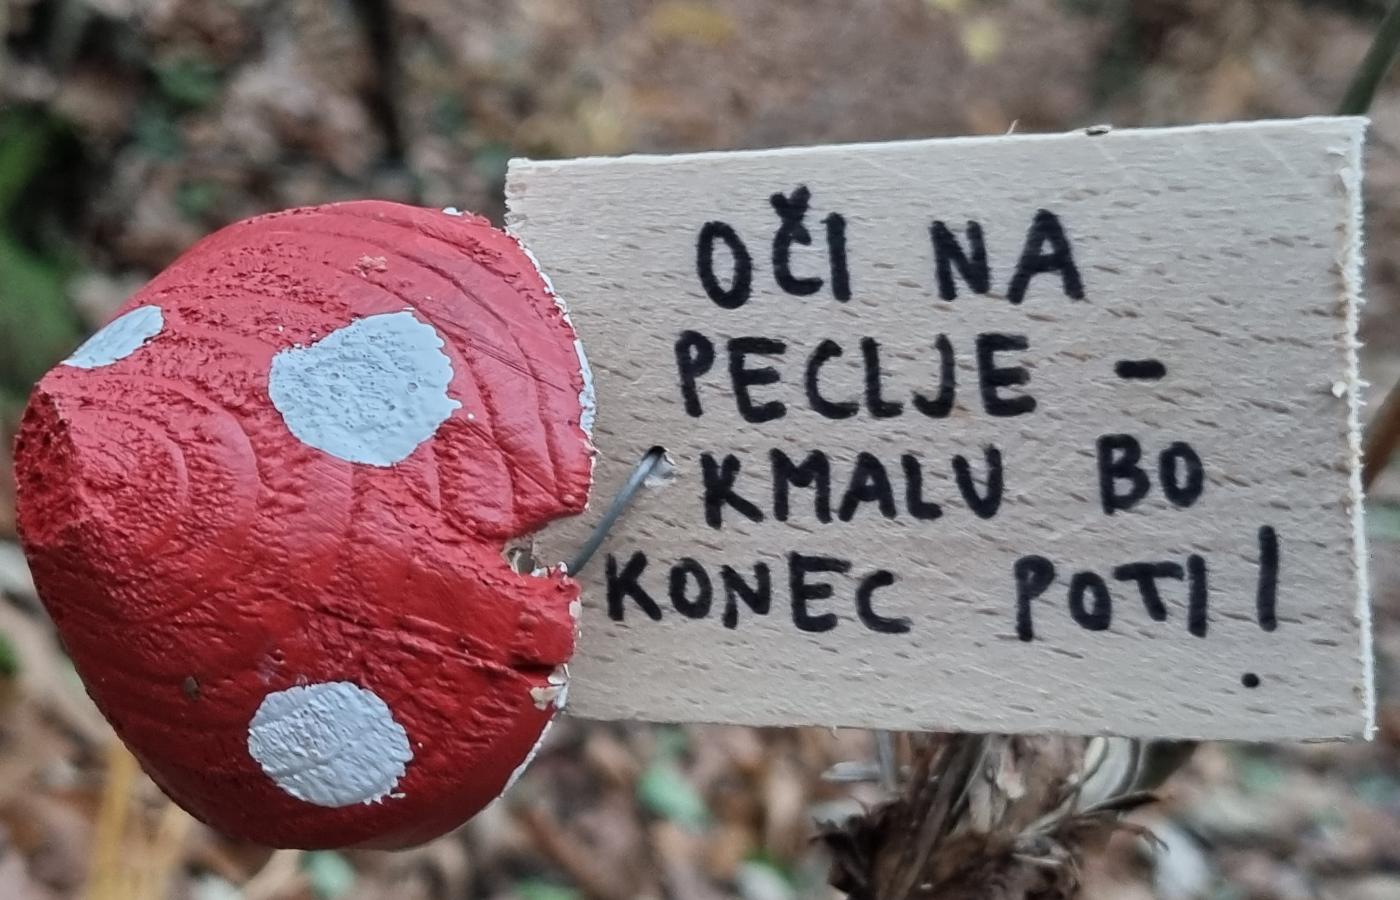 OČI NA
PECLJE -
KMALU BO
KONEC POTI!